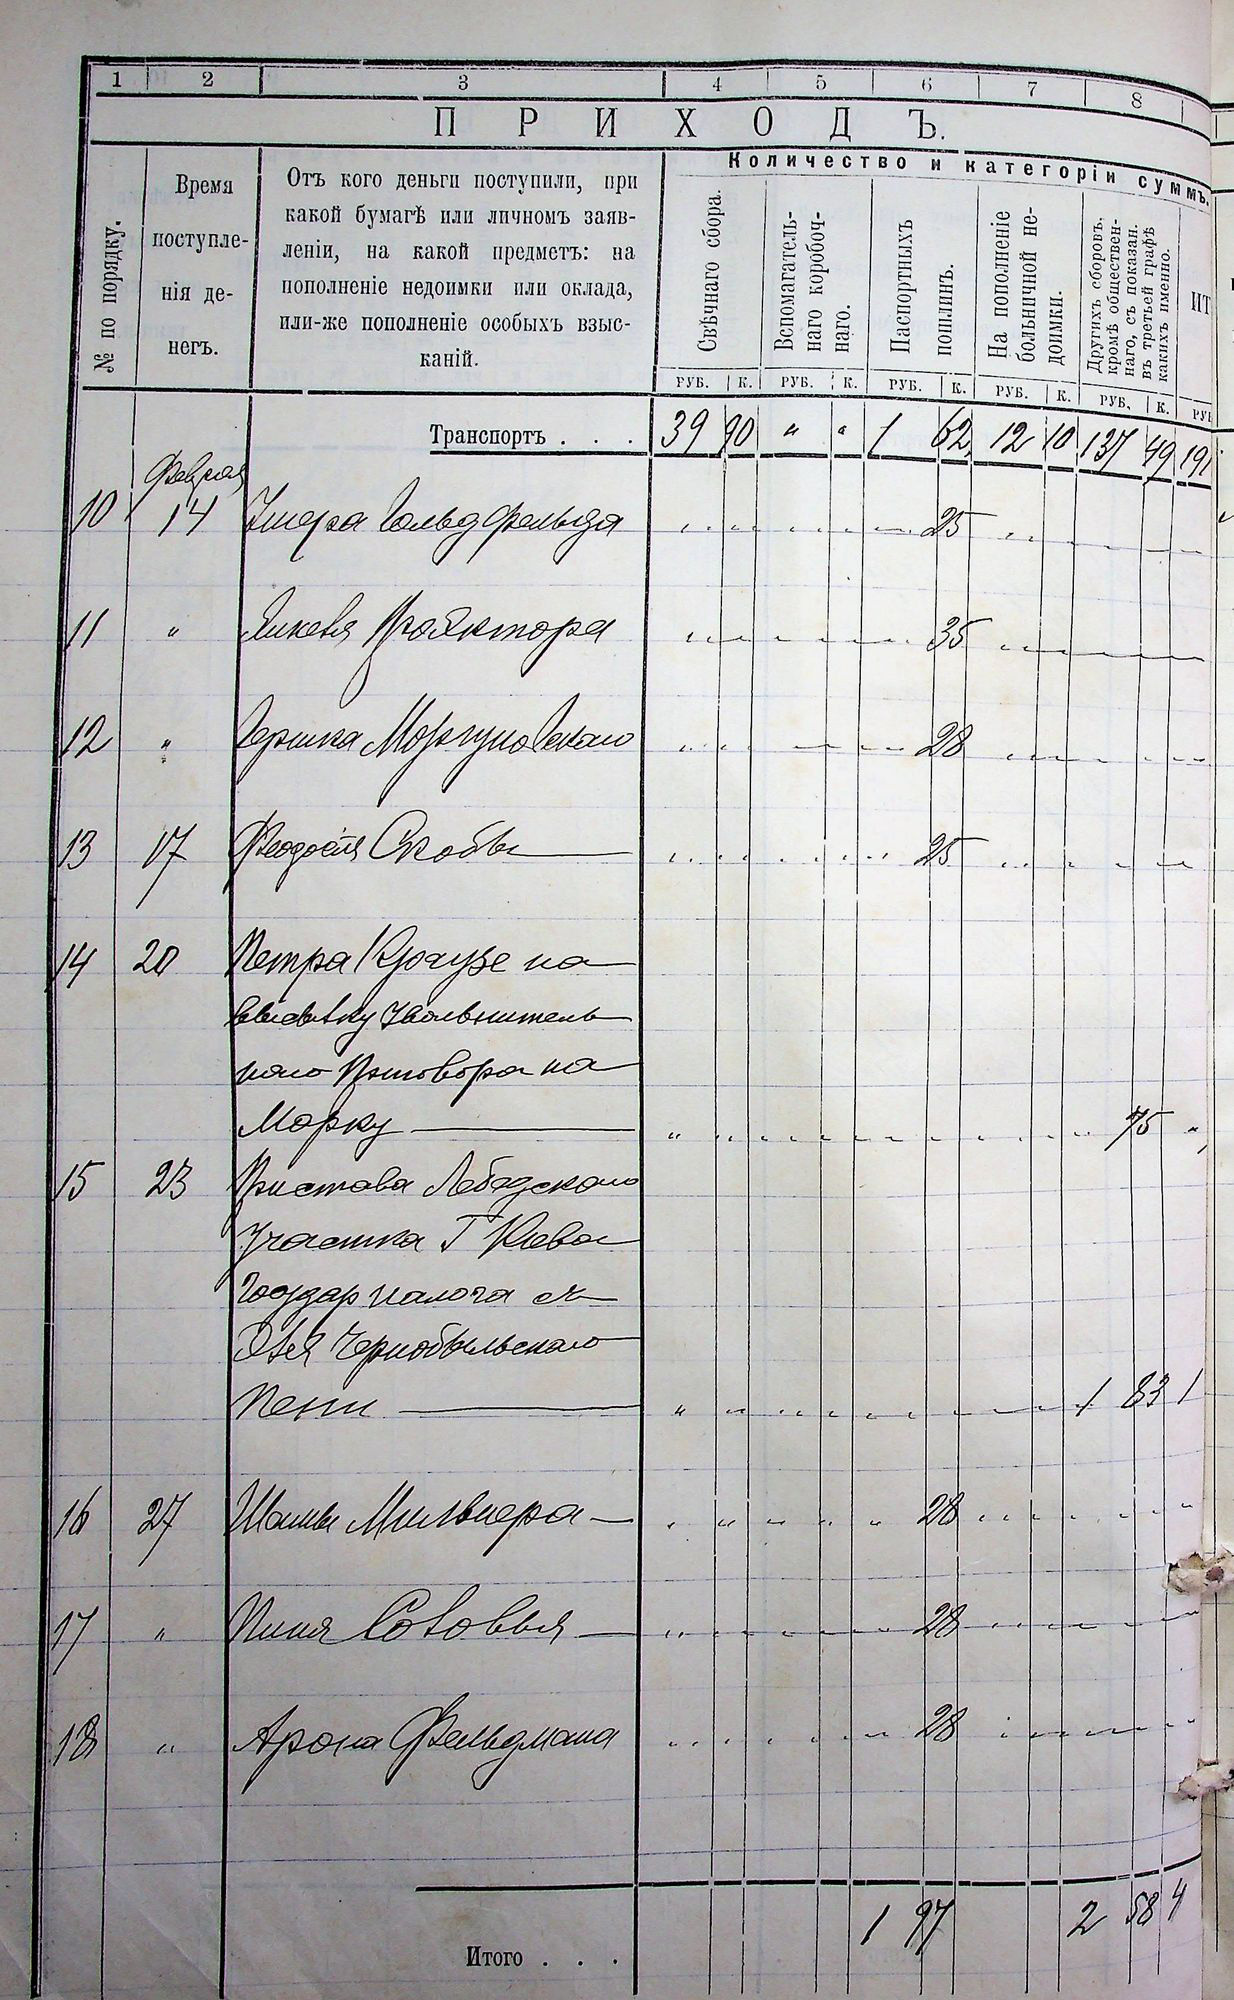 1 2 3 4 5 6 7 8
ПРИХОДЪ.
Количество и категоріи суммъ.
№ по порядку.
Время поступле-
нія де-
негъ.
Отъ кого деньги поступили, при
какой бумагѣ или личномъ заяв-
леніи, на какой предметъ: на
пополненіе недоимки или оклада,
или-же пополненіе особыхъ взыс-
каній.
Свѣчнаго сбора.
Вспомагатель-
наго коробоч-
наго.
Паспортныхъ
пошлинъ.
На пополненіе
больничной не-
доимки.
Другихъ сборовъ,
кромѣ обществен-
наго, съ показан.
въ третьей графѣ
какихъ именно.
ИТ
РУБ. К. РУБ. К. РУБ. К. РУБ. К. РУБ. К. РУБ
Транспортъ . . . 39 90 „ „ 1 62 12 10 137 49 191
Февраля
10 14 Гольдфельда 25
11 „ Фактора 35
12 „ Гершка 28
13 17 Феодосія Скобы 25
14 20 Петра Краузе на
высылку увольнитель
наго Приговора на
Марку 75
15 23 Пристава Лебедскаго
Участка Г Киева
Государ налога съ
Чернобыльскаго
Пени 1 83 1
16 27 Мильнера 28
17 „ 28
18 „ Арона Фельдмана 28
Итого . . . 1 97 2 58 4